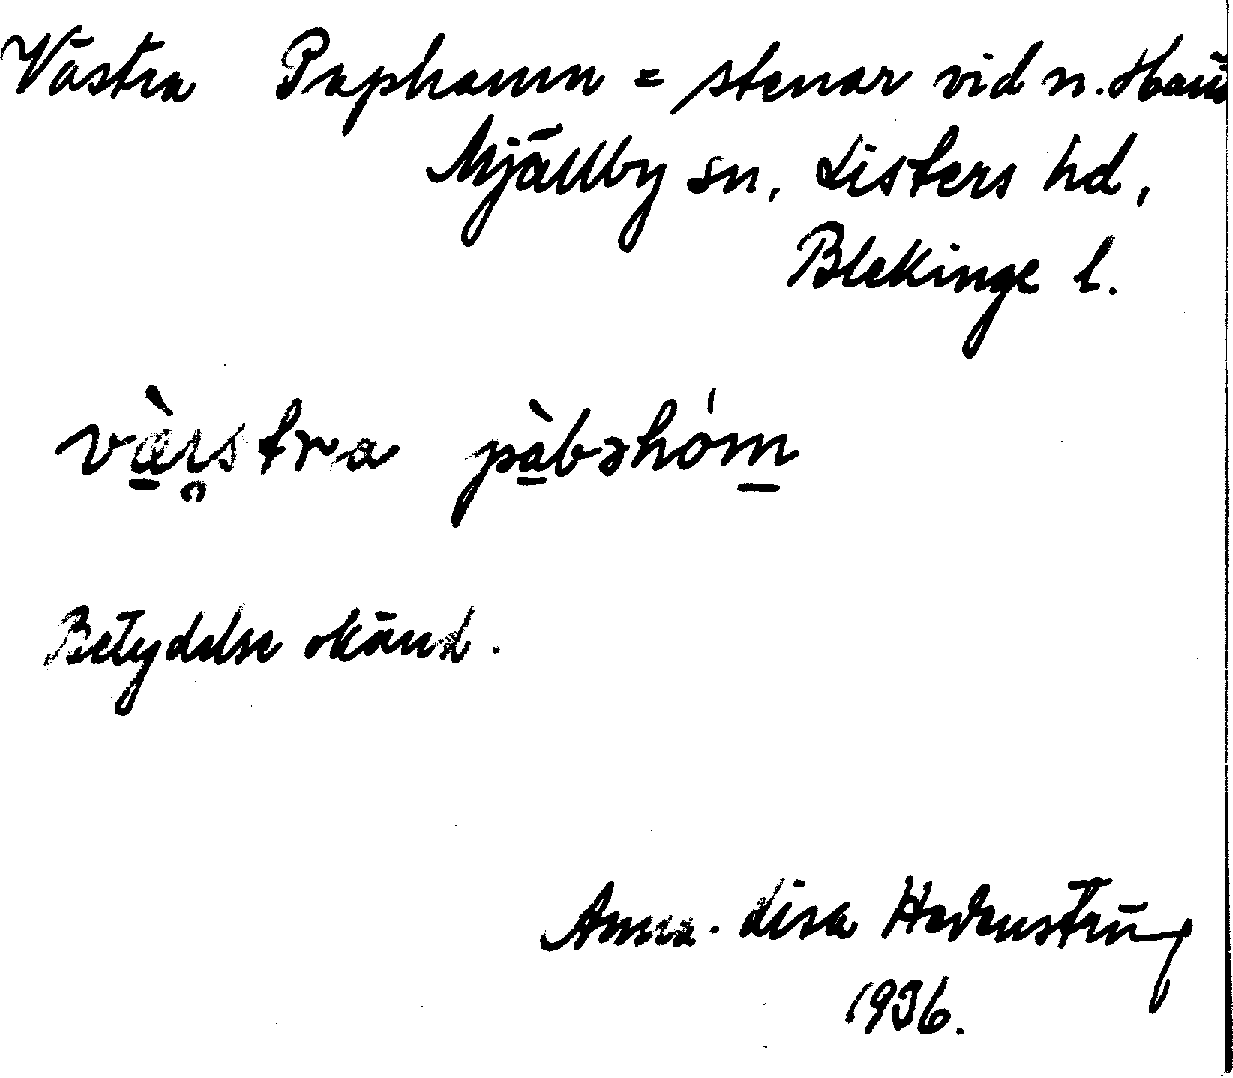 Västra Paphamn = stenar vid n. Hanö
Mjällby sn, Listers hd,
Blekinge l.
væ̀ı̥stra pàbəhóm
Betydelse okänd.
Anna-Lisa
1936.